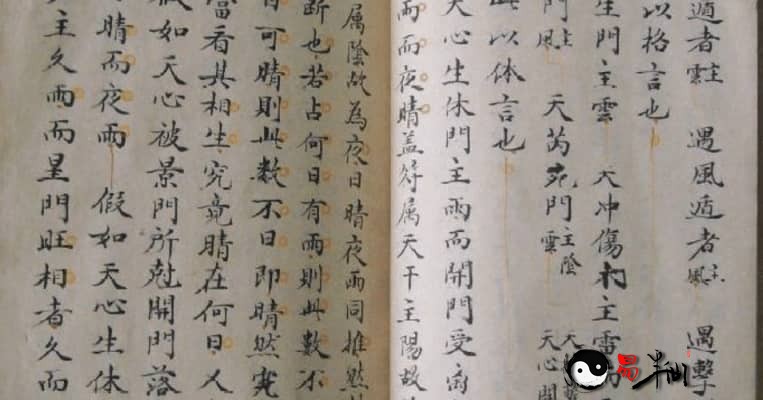 遁者主雲 遇風遁者主風 遇擊
以格言也
生門主雲 天冲傷門主雷
門主風 天芮死門主陰雲 天心開
以体言也
天心生休門主雨而開門受
雨而夜晴蓋符属天干主陽故
属陰故為夜日晴夜雨同推然
断也若占何日有雨則此數不
日可晴則此數不日即晴然究
當看其相生究竟晴在何日又
假如天心被景門所尅開門落
晴而夜雨 假如天心生休
主久雨而星門旺相者久而
易半仙